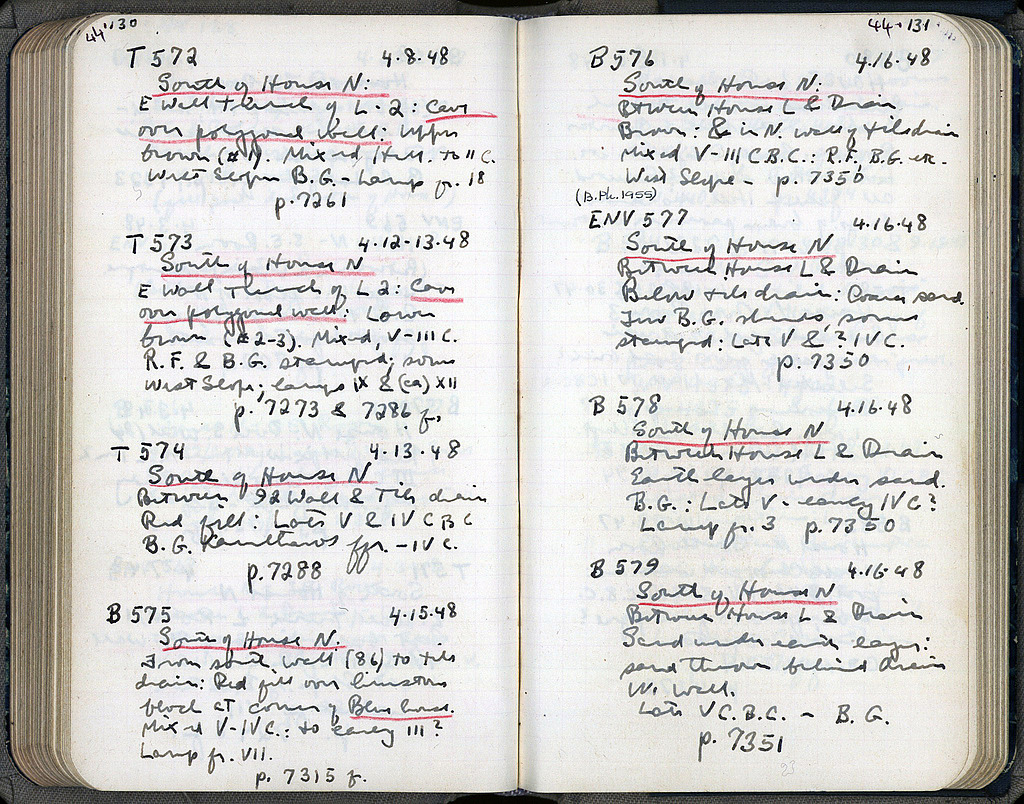 44·130
T 572 4·8·48
South of House N:
E Wall trench of L·2: Cave
over polygonal wall: Upper
brown (#1). Mixed, Hell. to II C.
West Slope B.G. - Lamp fr. 18
p. 7261
T 573 4·12-13·48
South of House N
E Wall trench of L 2: Cave
over polygonal wall: Lower
brown (#2-3). Mixed, V-III C.
R.F. & B.G. stamped; some
West Slope; lamps IX & (ca) XII
p. 7273 & 7286 f.
T 574 4·13·48
South of House N
Between 92 Wall & Tile drain
Red fill: Late V & IV C B C
B.G. Kantharos fr. - IV C.
p. 7288
B 575 4·15·48
South of House N.
From south wall (86) to tile
drain: Red fill over limestone
block at corner of Blue house.
Mixed V-IV C.: to early III?
Lamp fr. VII.
p. 7315 f.
44·131
B 576 4·16·48
South of House N:
Between House L & Drain
Brown: & in N. wall of tile drain
Mixed V-III C B.C.: R.F. B.G. etc.
West Slope - p. 7350
(B.Ph. 1955)
ENV 577 4·16·48
South of House N
Between House L & Drain
Below tile drain: Coarse sand.
Few B.G. sherds, some
stamped: Late V & ? IV C.
p. 7350
B 578 4·16·48
South of House N
Between House L & Drain
Earth layer under sand.
B.G.: Late V - early IV C?
Lamp fr. 3 p. 7350
B 579 4·16·48
South of House N
Between House L & Drain
Sand under earth layer:
sand thrown behind drain
W. wall.
Late V C. B.C. - B.G.
p. 7351
23